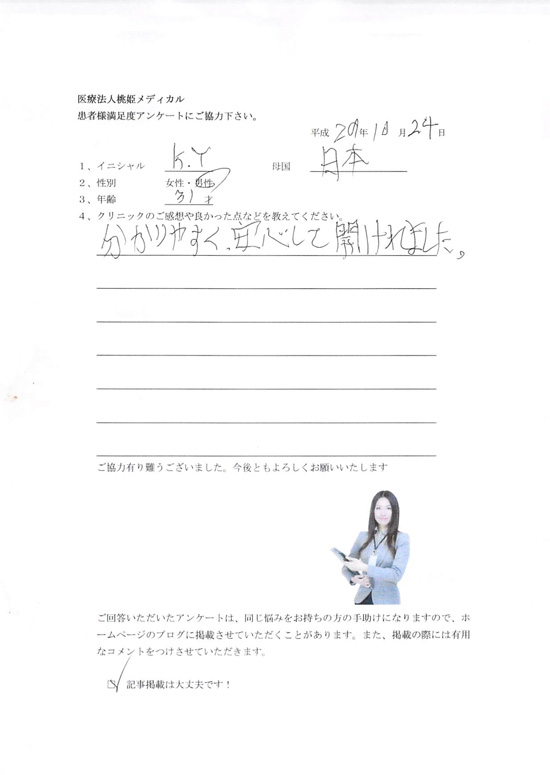 医療法人桃姫メディカル
患者様満足度アンケートにご協力下さい。
平成 29年 10月 24日
1、イニシャル K.Y 母国 日本
2、性別 女性・男性
3、年齢 31 才
4、クリニックのご感想や良かった点などを教えてください。
分かりやすく、安心して聞けれました。
ご協力有り難うございました。今後ともよろしくお願いいたします
ご回答いただいたアンケートは、同じ悩みをお持ちの方の手助けになりますので、ホ
ームページのブログに掲載させていただくことがあります。また、掲載の際には有用
なコメントをつけさせていただきます。
☑ 記事掲載は大丈夫です！